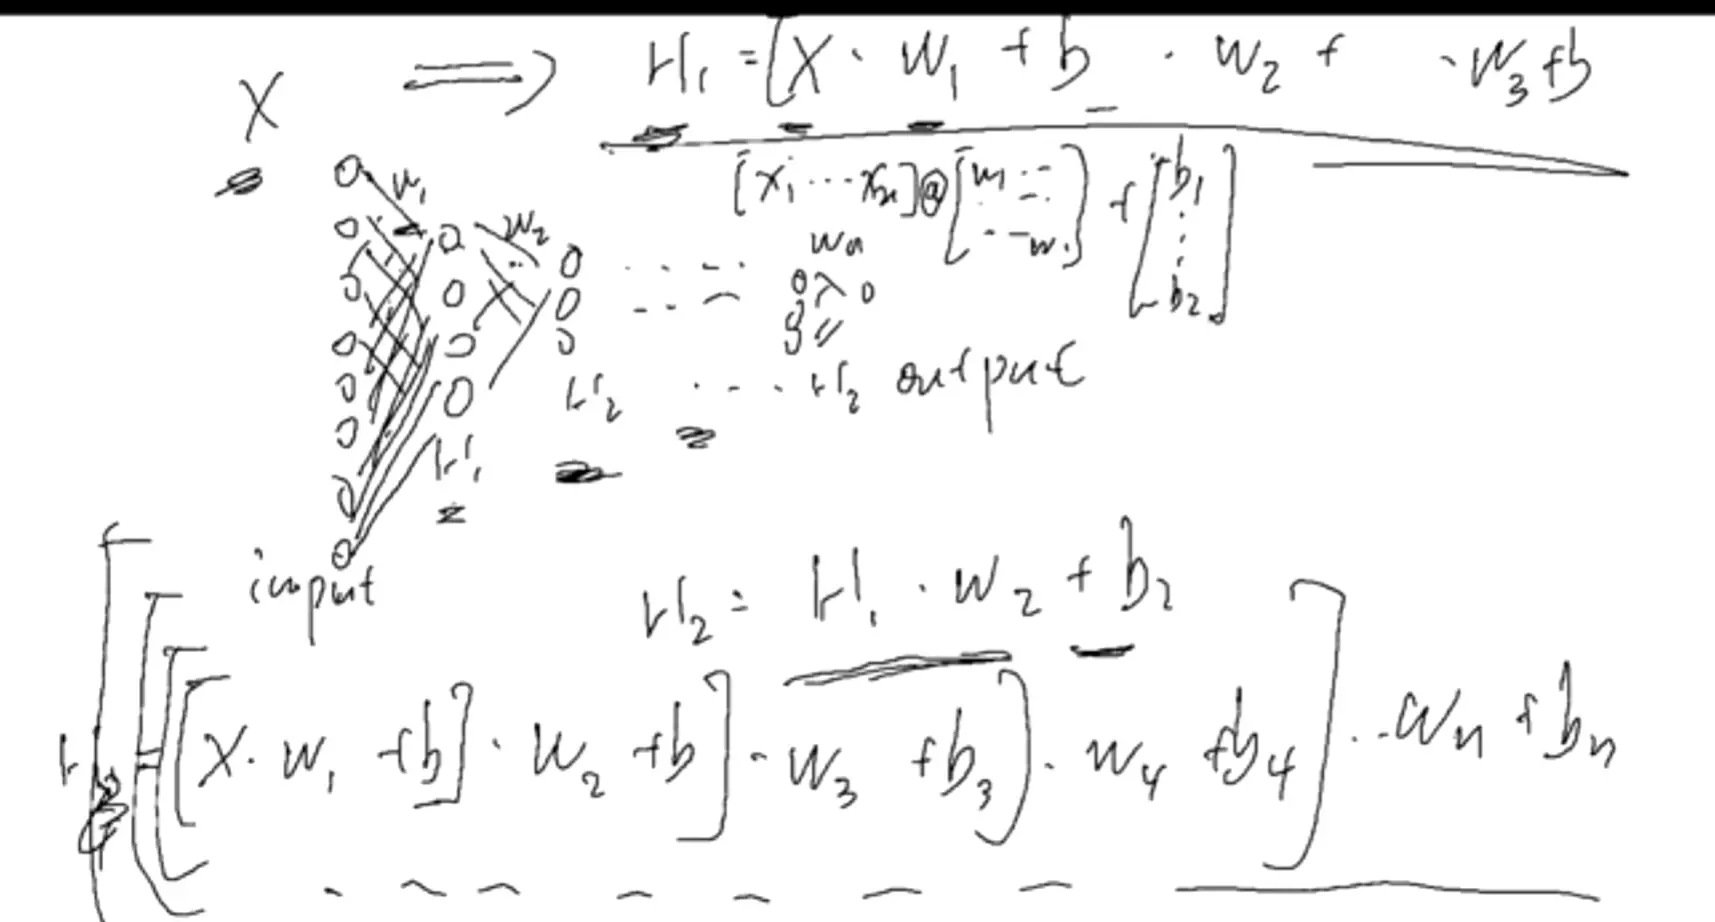 X ⟹ H₁ = [X · W₁ + b · W₂ + · W₃ + b
[x₁ ··· xₙ] @ [w₁ ·· ·· w·] + [b₁ ⋮ b₂]
W₁ W₂ Wn
H₂ ··· H₂ output
H₁
input
H₂ = H₁ · W₂ + b₂
= [[[[X · W₁ + b] · W₂ + b] · W₃ + b₃] · W₄ + b₄] ·· Wn + bn